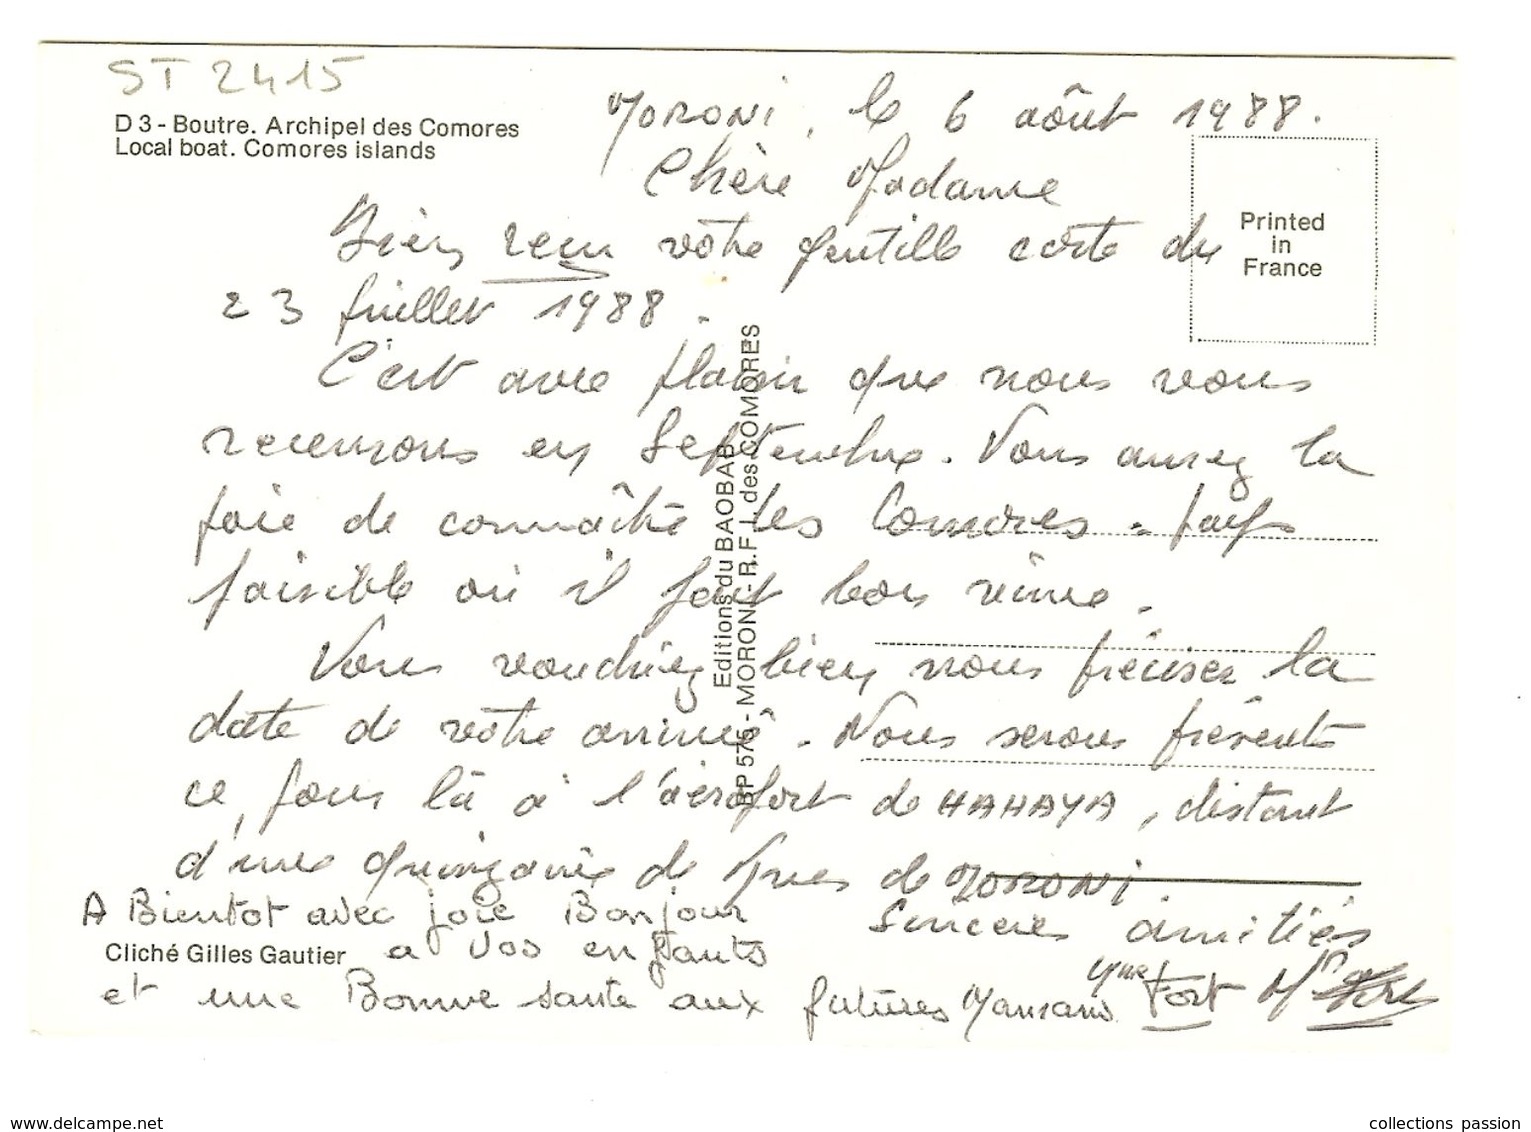 ST 2415
D 3 - Boutre. Archipel des Comores
Local boat. Comores islands
Printed
in
France
Moroni, le 6 août 1988.
Chère Madame
Bien reçu votre gentille carte du
23 juillet 1988.
C'est avec plaisir que nous vous
recevrons en Septembre. Vous aurez la
joie de connaître les Comores - pays
paisible où il fait bon vivre.
Vous voudriez bien nous préciser la
date de votre arrivée. Nous serons présents
ce jour là à l'aéroport de HAHAYA, distant
d'une quinzaine de Kms de MORONI.
Sincères amitiés
A Bientot avec joie Bonjour
a vos enfants
et une Bonne sante aux futures Mamans
Mme Fort Mr
Editions du BAOBAB
BP 575 - MORONI - R.F.I. des COMORES
Cliché Gilles Gautier
www.delcampe.net
collections passion